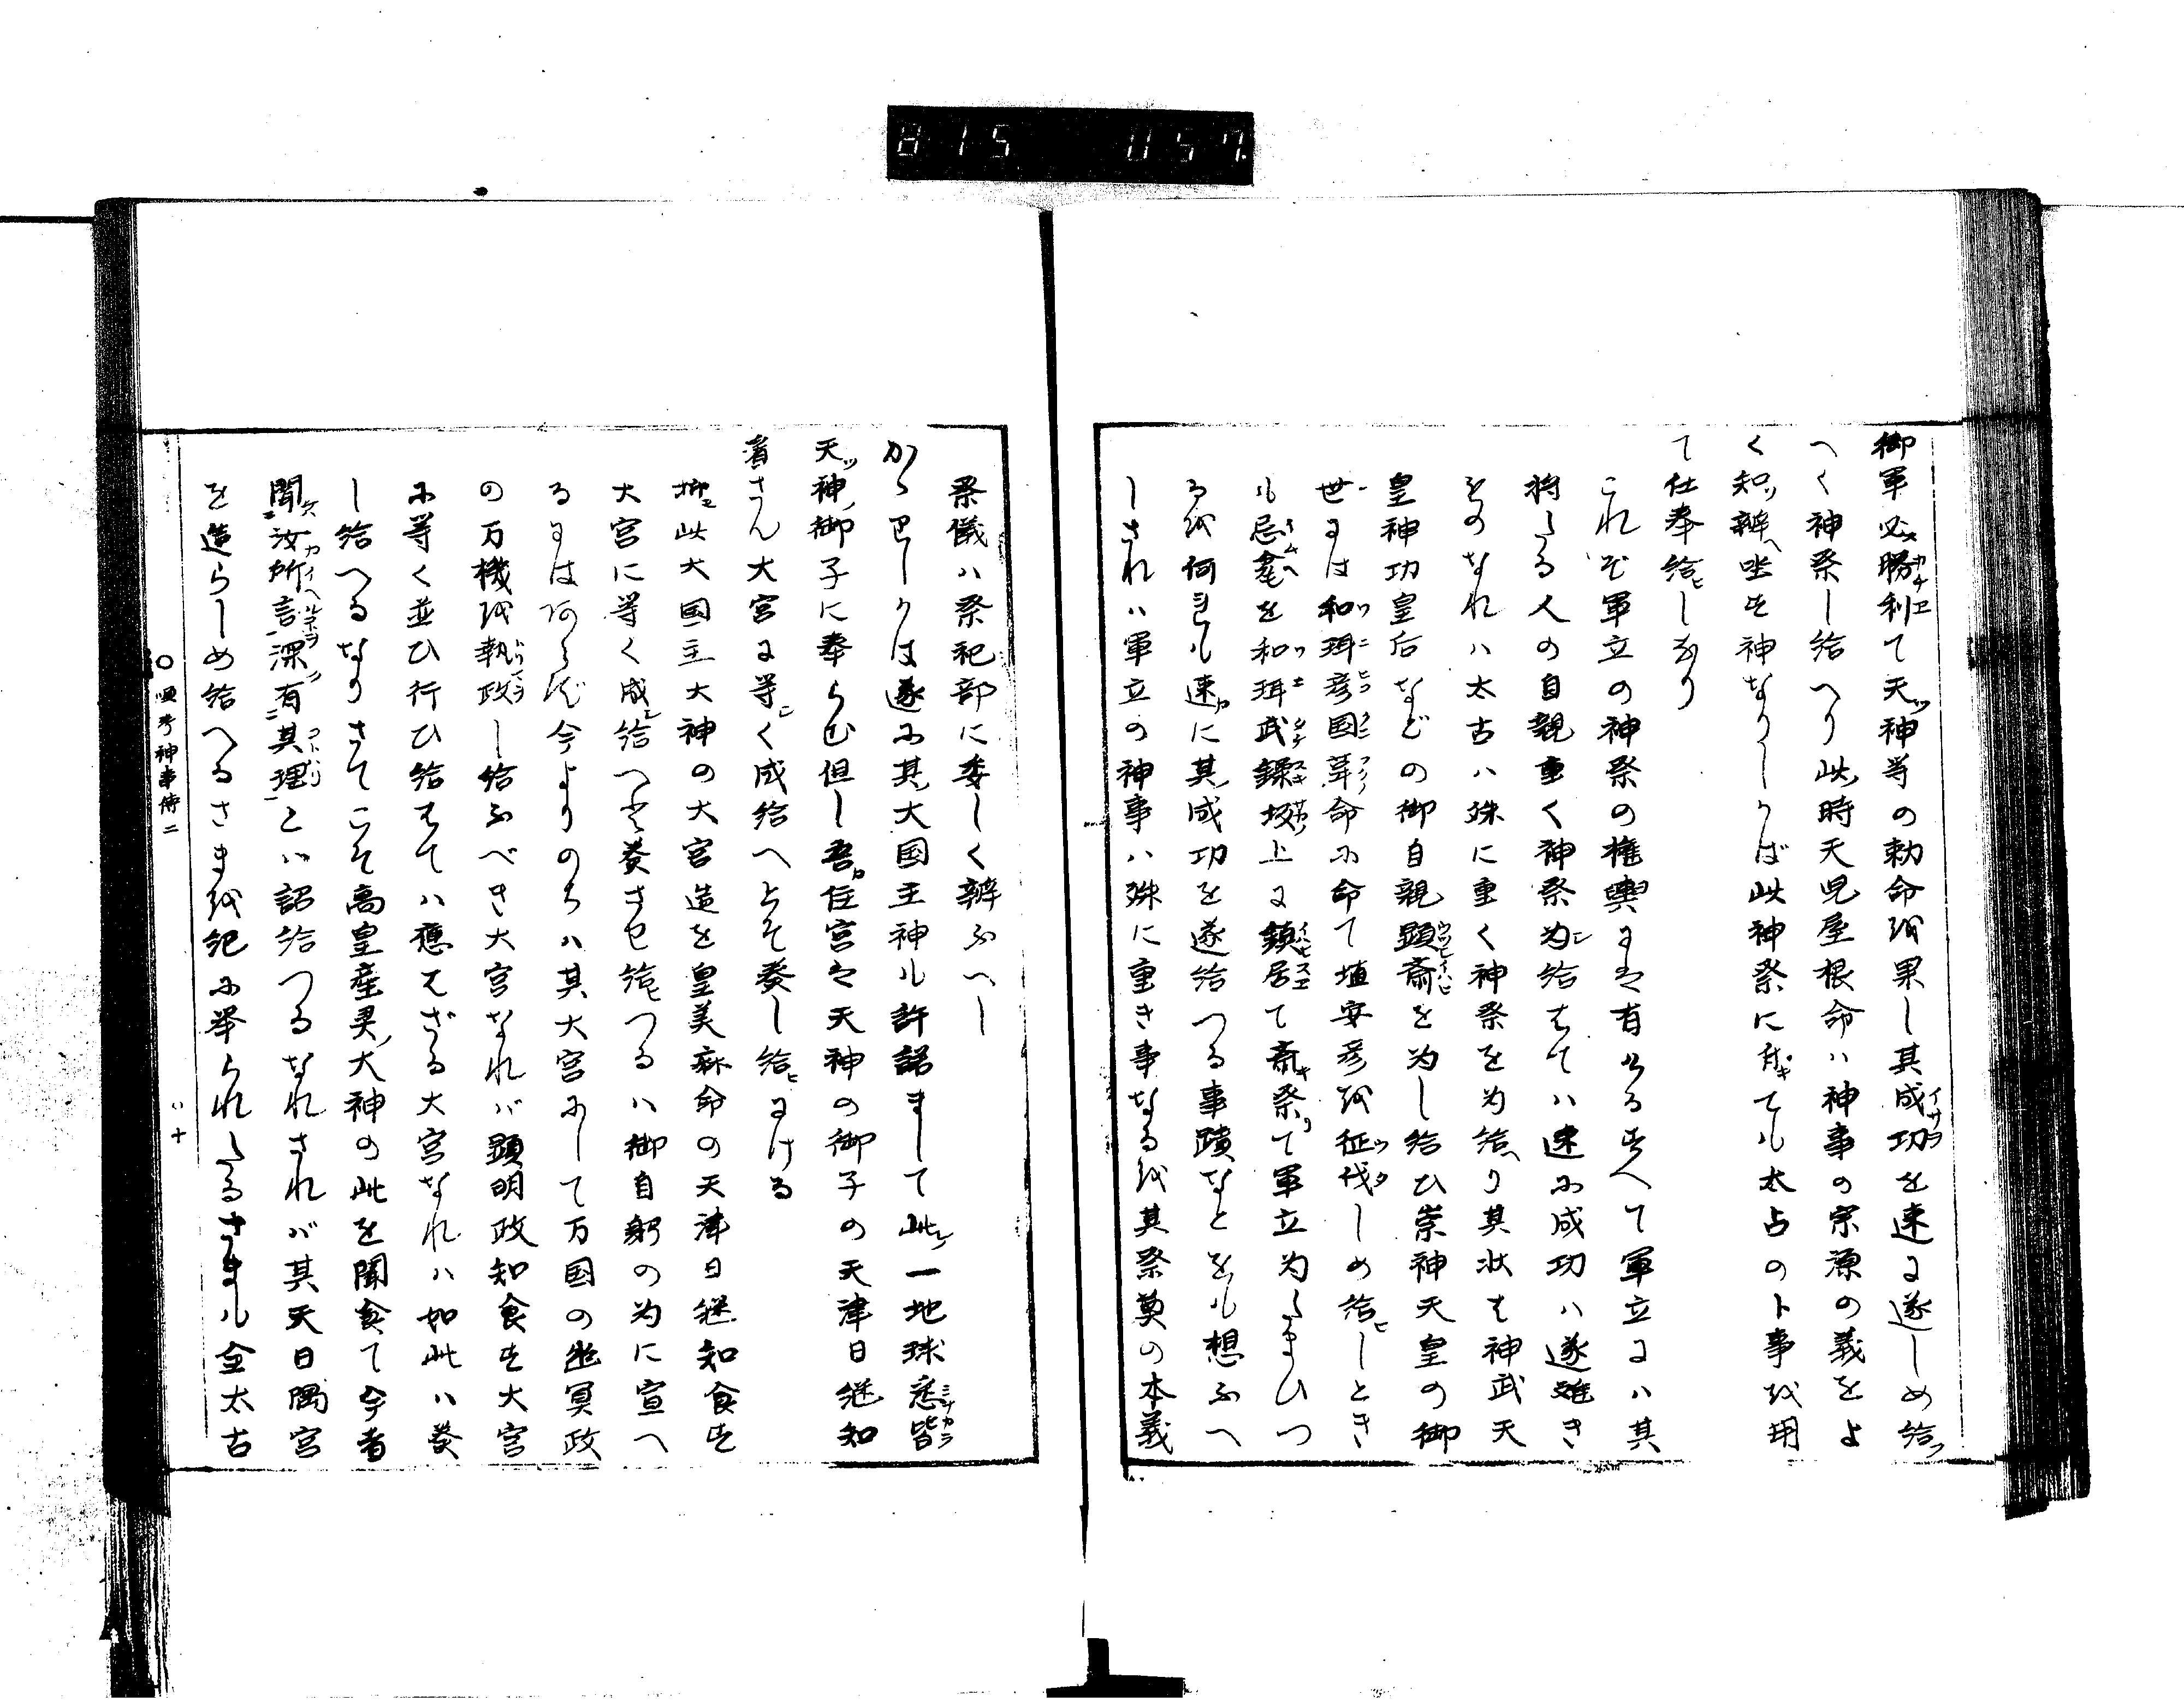 815 057
御軍必勝利て天ッ神等の勅命を果し其成功を速に遂しめ給フ
へく神祭し給へり此ノ時天児屋根命ハ神事の宗源の義をよ
く知リ辨ヘ坐せ神なりしかば此神祭に於ても太占の卜事を用
て仕奉給ヒしなり
これぞ軍立の神祭の権輿には有ける故へて軍立にハ其
将たる人の自親重く神祭為シ給はてハ速に成功ハ遂難き
ものなれハ太古ハ殊に重く神祭を為給ヘり其状は神武天
皇神功皇后などの御自親顕斎を為し給ひ崇神天皇の御
世には和珥彦国葺命に命て埴安彦を征伐しめ給ヒしとき
も忌瓮を和珥武鐰坂ノ上に鎮居て斎祭リて軍立為たまひつ
るを何れも速カに其ノ成功を遂給つる事蹟などをも想ふへ
しされハ軍立の神事ハ殊に重き事なるを其祭奠の本義
祭儀ハ祭祀部に委しく辨ふへし
かゝりしかは遂に其ノ大国主神も許諾まして此ノ一地球悉皆
天ッ神ノ御子に奉らむ但し吾カ住宮は天神の御子の天津日継知
看さん大宮に等シく成給へとそ奏し給ヒにける
抑モ此大国主大神の大宮造を皇美麻命の天津日継知食せ
大宮に等く成シ給へと奏させ給ヒつるハ御自躬の為に宣へ
るにはあらず今よりのちハ其大宮にして万国の幽冥政
の万機を執政し給ふべき大宮なれバ顕明政知食せ大宮
に等く並ひ行ひ給はてハ応はざる大宮なれハ如此ハ奏
し給へるなりさてこそ高皇産霊ノ大神の此を聞食て今者
聞ク汝ガ所言深ク有其理とハ詔給つるなれされバ其天日隅宮
を造らしめ給へるさまを紀に挙られたるさまも全太古
○ 神事傳二
八十